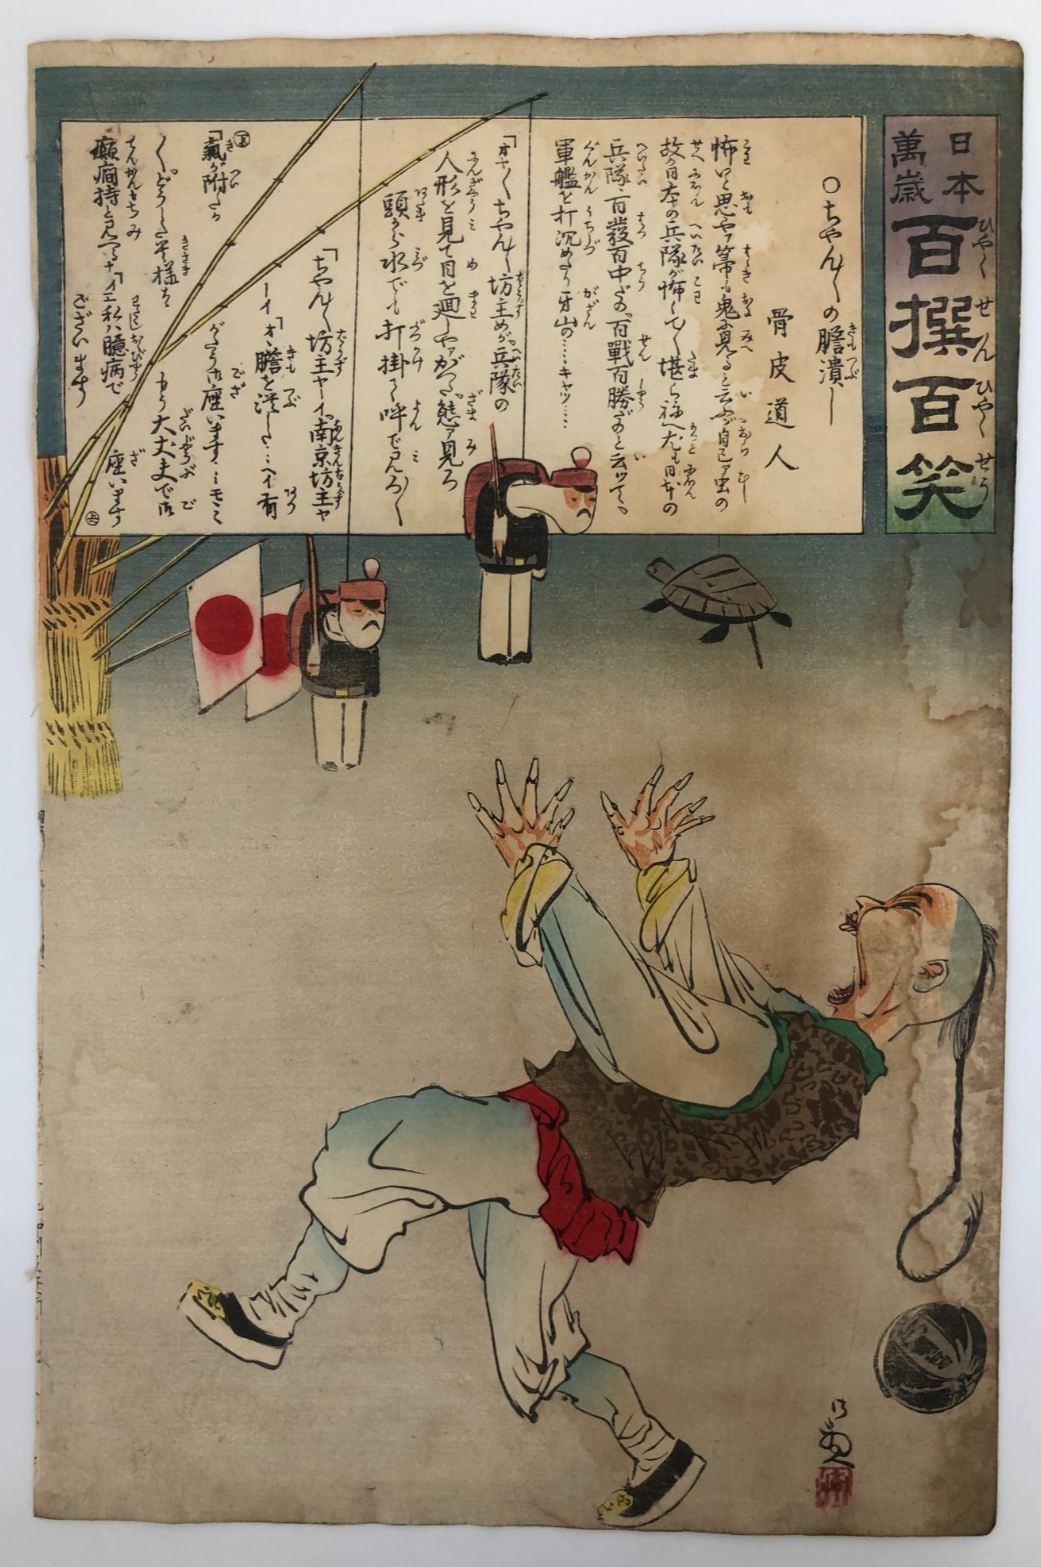 日本
萬歳
百撰百笑
ひやくせんひやくせう
○ちやん〳〵の膽潰し
骨皮道人
怖いと思やア箒も鬼に見ゑると云ふが自己ア虫の
故日本の兵隊が怖しくて堪ら
兵隊ハ百發百中だの百戰百勝だのと云ッて、
軍艦を打沈めたり牙山の……キャッ……
「オヤ〳〵ちやん〳〵坊主めが兵隊の
人形を見て目を廻しやアがッた態ア見ろ
頭から水でも打掛けて呼で見ろ〳〵
「ちやん〳〵坊主ヤーイ、南京坊主ヤ
ーイ「オヽ膽を潰した……ヘイ有
がたう御座います……モウ
もう大丈夫で御
座います
「氣が附たか
癲癇持と見へるナ「イエ私ハ臆病で
ございます